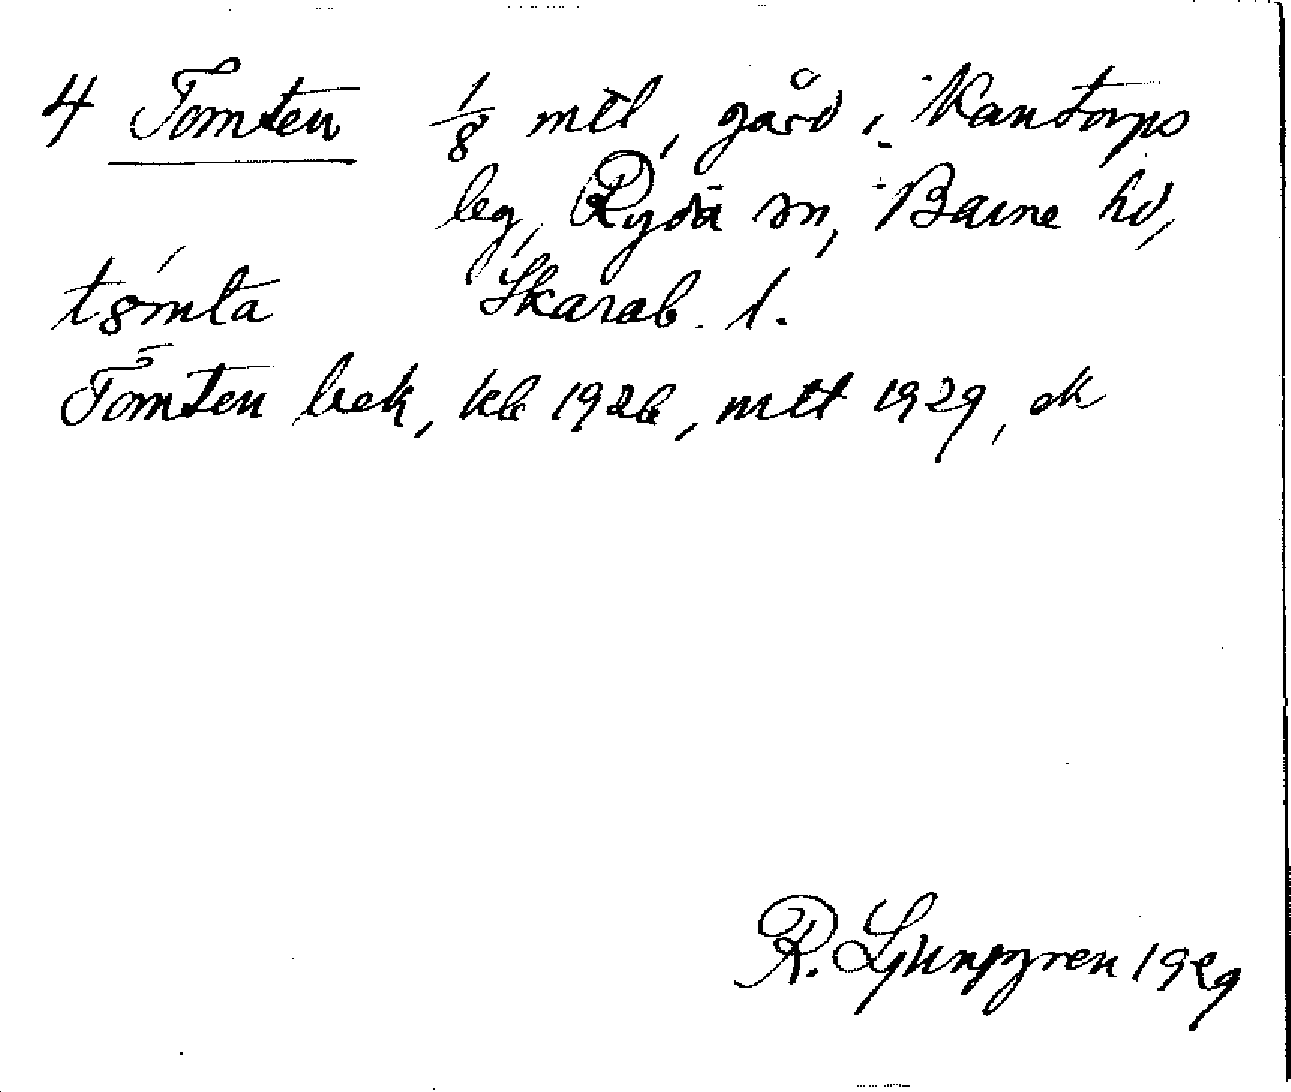 4 Tomten 1/8 mtl, gård i Kantorps
leg, Ryda sn, Barne hd,
tømta Skarab. l.
Tomten bek, kb 1926, mtl 1929, ek
R. Ljunggren 1929